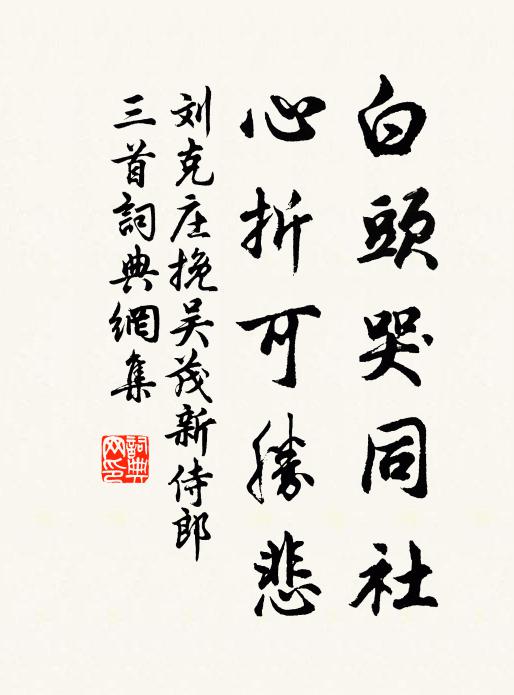 白頭哭同社
心折可勝悲
刘克庄挽吴茂新侍郎
三首詞典網集
詞典网印